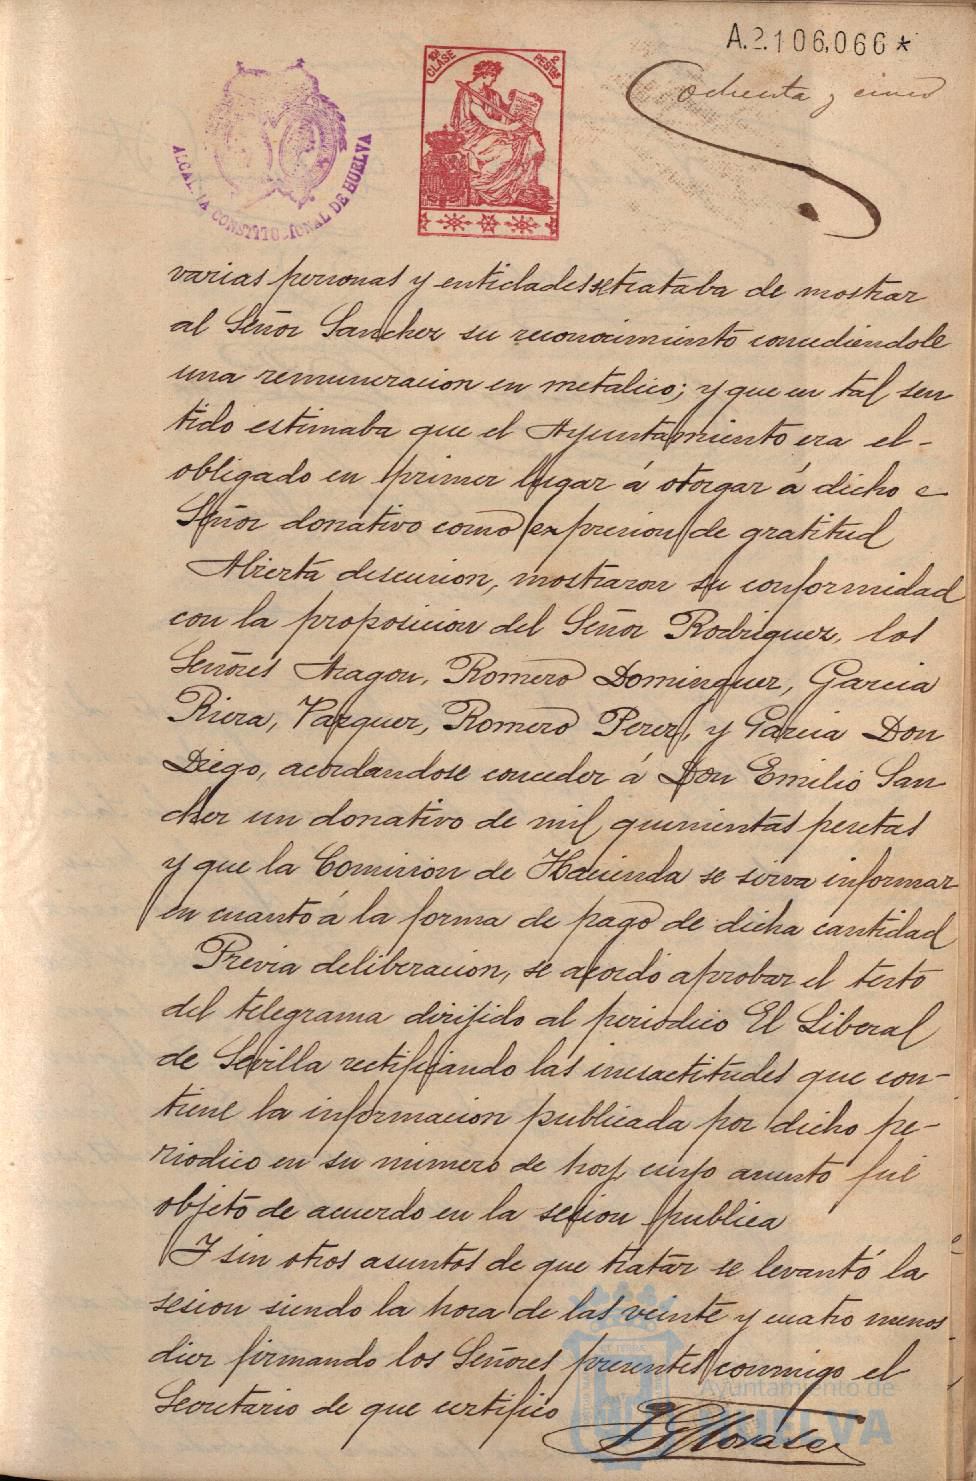 A.2.106,066 *
Ochenta y cinco
10ª CLASE
2 PESETAS
ALCALDIA CONSTITUCIONAL DE HUELVA
varias personas y entidades se trataba de mostrar
al Señor Sanchez su reconocimiento concediendole
una remuneracion en metalico; y que en tal sen
tido estimaba que el Ayuntamiento era el-
obligado en primer lugar á otorgar á dicho
Señor donativo como expresion de gratitud
Abierta discusion, mostraron su conformidad
con la proposicion del Señor Rodriguez, los
Señores Aragon, Romero Dominguez, Garcia
Riera, Vazquez, Romero Perez, y Garcia Don
Diego, acordandose conceder á Don Emilio San
chez un donativo de mil quinientas pesetas
y que la Comision de Hacienda se sirva informar
en cuanto á la forma de pago de dicha cantidad
Previa deliberacion, se acordó aprobar el testo
del telegrama dirijido al periodico El Liberal
de Sevilla rectificando las inesactitudes que con-
tiene la informacion publicada por dicho pe-
riodico en su numero de hoy cuyo asunto fué
objeto de acuerdo en la sesion publica
Y sin otros asuntos de que tratar se levantó la
sesion siendo la hora de las veinte y cuatro menos
diez firmando los Señores presentes conmigo el
Secretario de que certifico
Ayuntamiento de
HUELVA